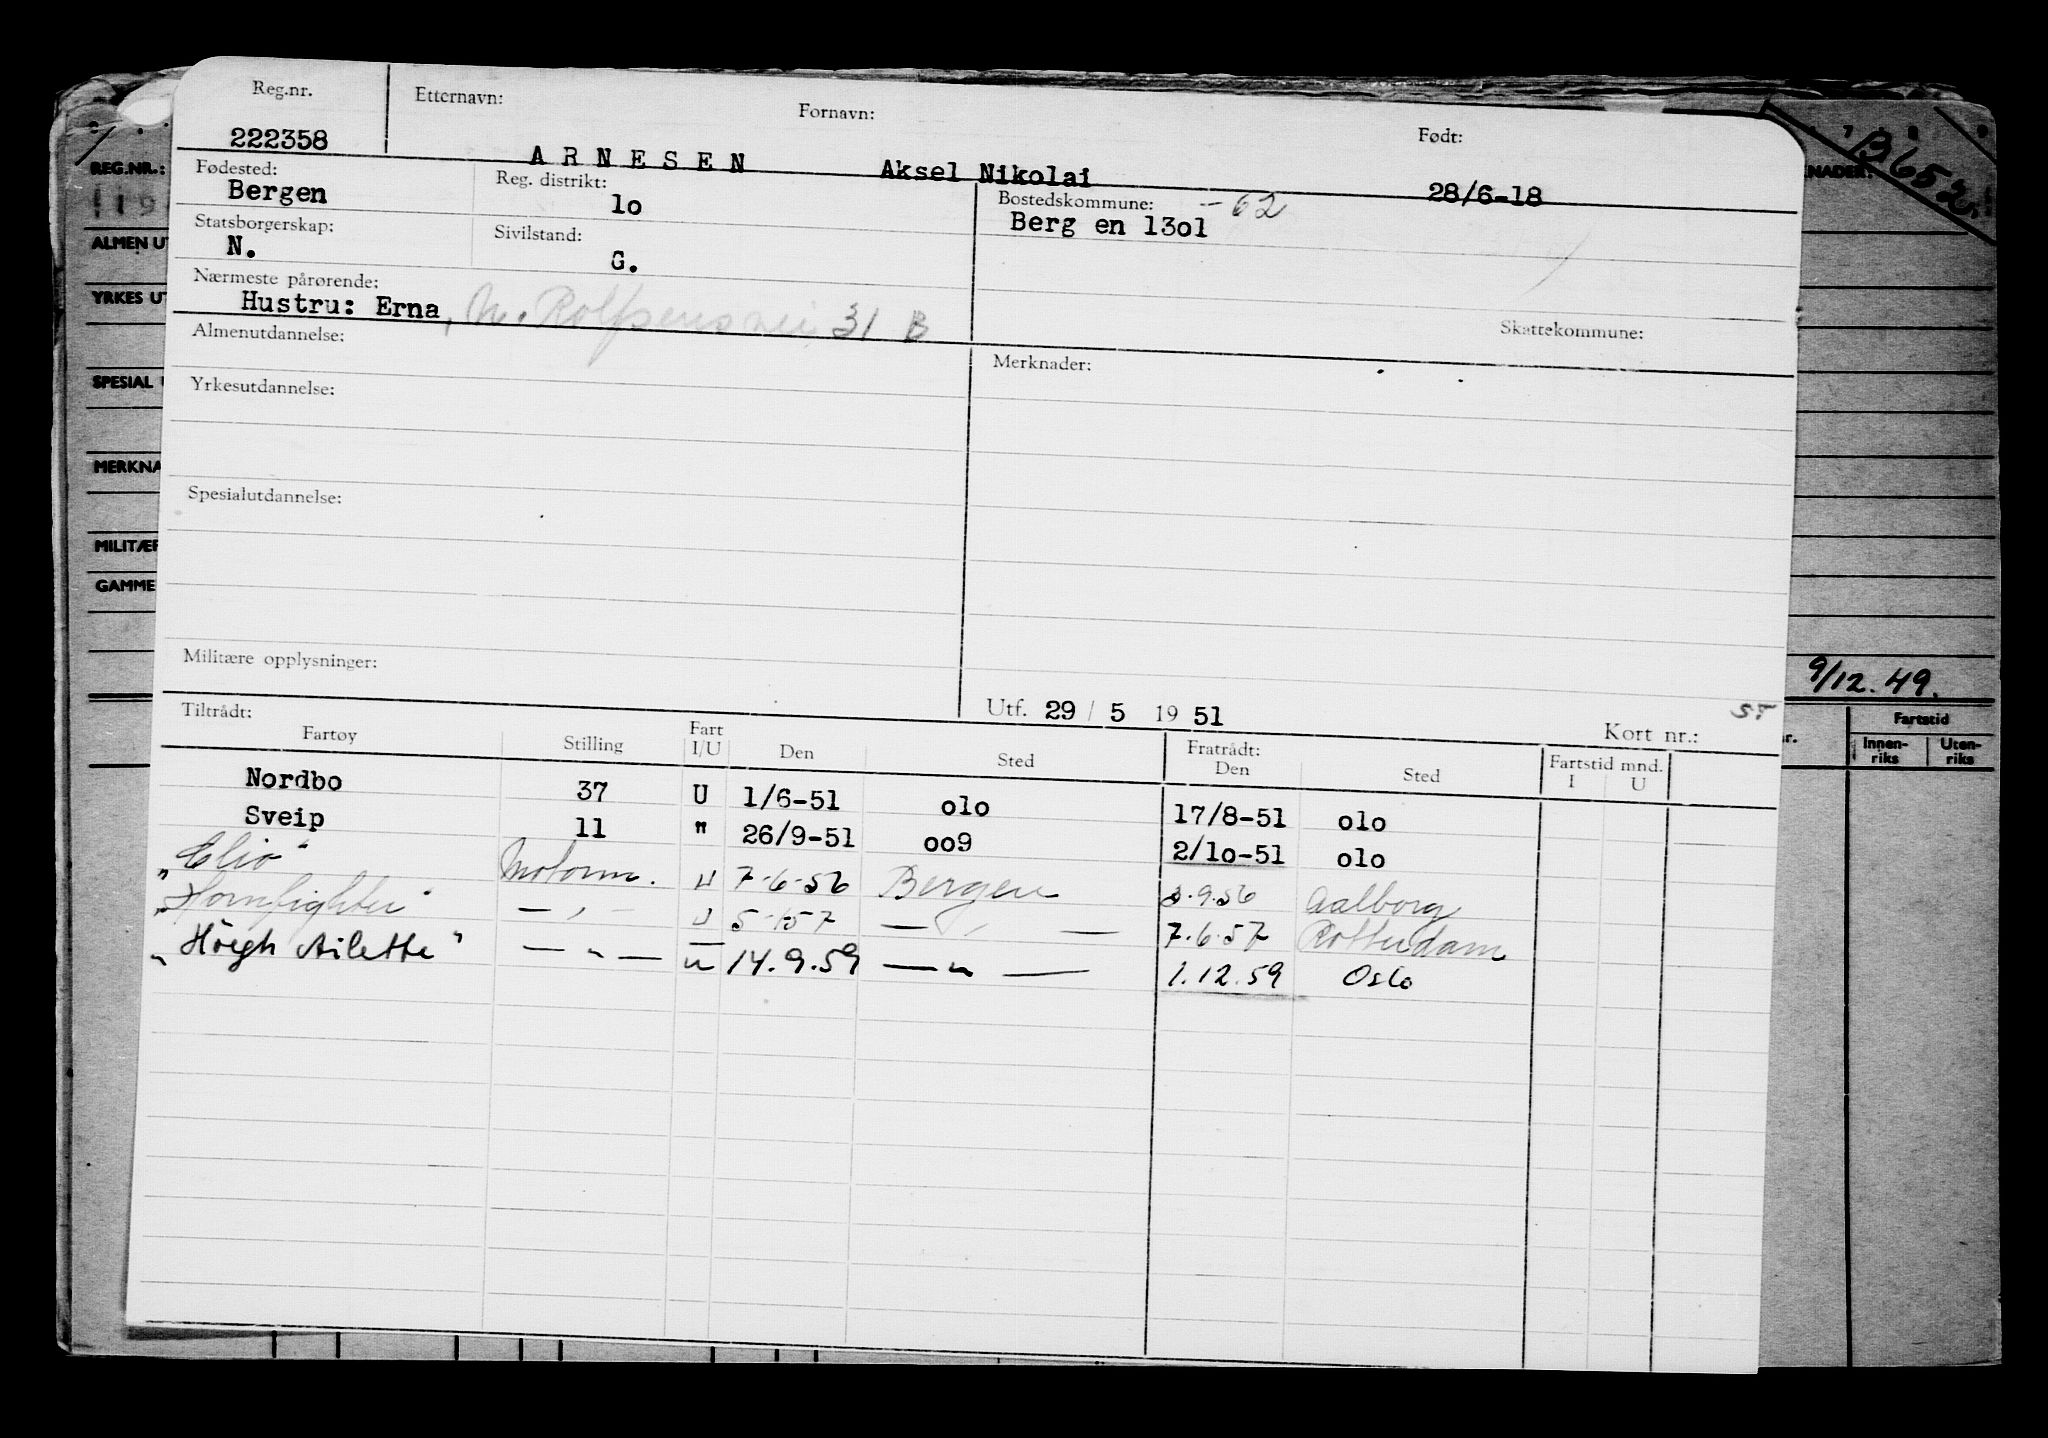 Reg.nr. Etternavn: Fornavn: Født:
222358 ARNESEN Aksel Nikolai 28/6-18
Fødested: Reg. distrikt: Bostedskommune: -62
Bergen 1o Berg en 13o1
Statsborgerskap: Sivilstand:
N. G.
Nærmeste pårørende:
Hustru: Erna, M. Rolfsensvei 31 B
Almenutdannelse: Merknader: Skattekommune:
Yrkesutdannelse:
Spesialutdannelse:
Militære opplysninger:
Utf. 29 / 5 19 51 Kort nr.: ST
Tiltrådt: Fratrådt:
Fartøy Stilling Fart I/U Den Sted Den Sted Fartstid mnd. I U
Nordbo 37 U 1/6-51 o1o 17/8-51 o1o
Sveip 11 " 26/9-51 oo9 2/1o-51 o1o
"Clio" Motorm. U 7-6-56 Bergen 3.9.56 Aalborg
"Hornfighter" — " — U 5-1-57 — " — 7.6.57 Rotterdam
"Höegh Ailette" — " — " 14.9.59 — " — 1.12.59 Oslo
REG.NR.:
ALMEN UT
YRKES UT
SPESIAL
MERKNA
MILITÆR
GAMME
KNADER:
13652
9/12.49.
Fartstid
Innen-riks Uten-riks